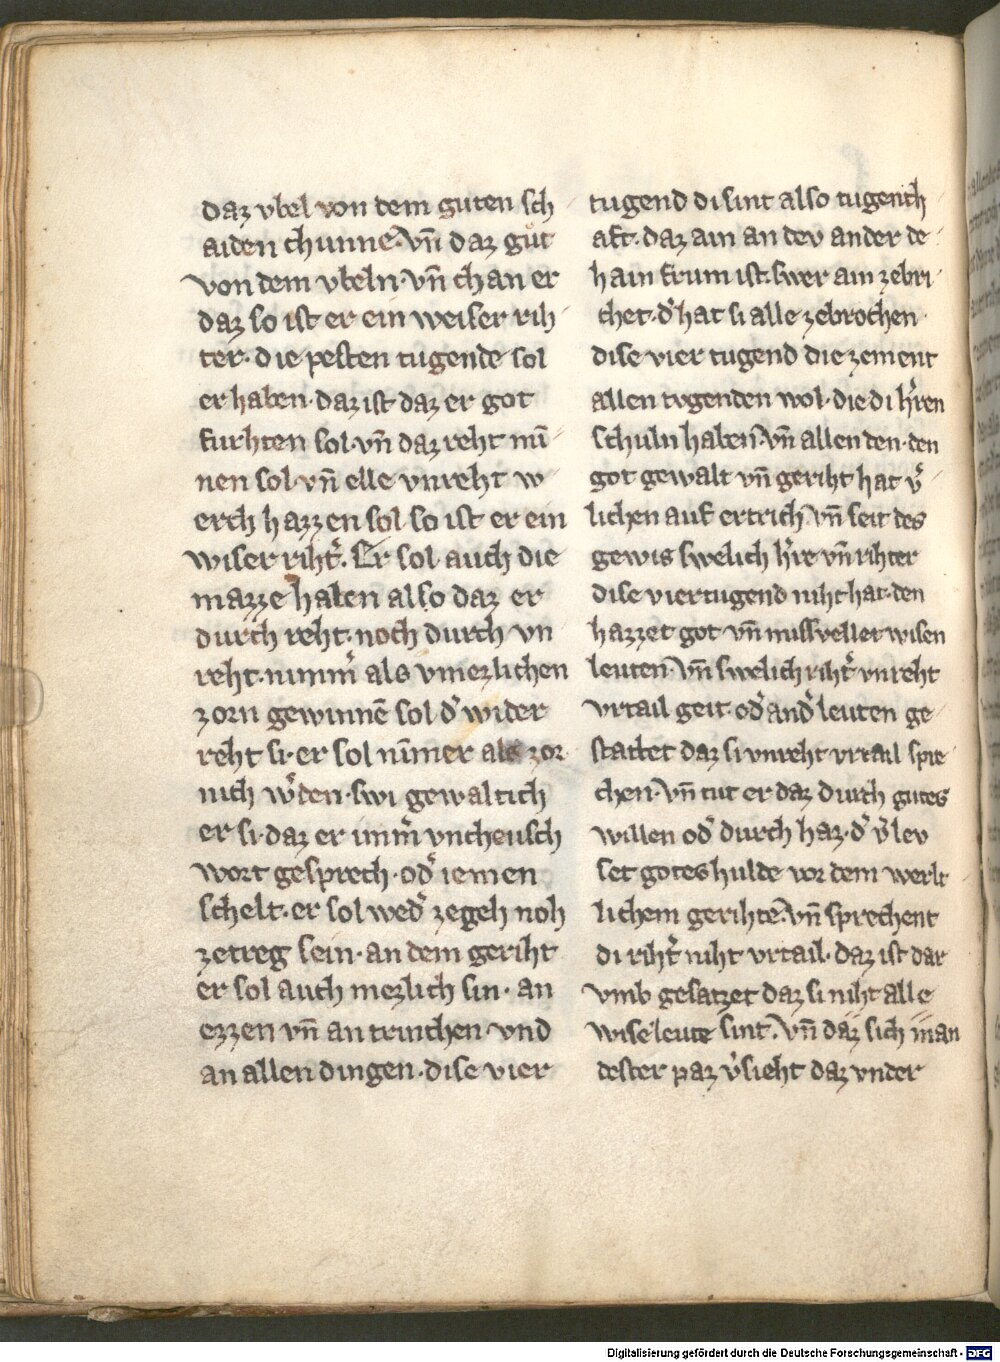 daz vbel von dem guten sch
aiden chunne. vn̄ daz gůt
von dem vbeln. vn̄ chan er
daz so ist er ein weiser rih
ter. die pesten tugende sol
er haben. daz ist daz er got
furhten sol. vn̄ daz reht mī
nen sol. vn̄ elle vnreht w
erch hazzen sol so ist er ein
wiser riht᷑. Er sol auch die
mazze haben also daz er
durch reht. noch durch vn
reht. nimm᷑ als vnmezlichen
zorn gewinnē sol d᷑ wider
reht si. er sol nūmer als zor
nich w᷑den. swi gewaltich
er si. daz er imm᷑ vncheusch
wort gesprech. od᷑ iemen
schelt. er sol wed᷑ zegeh noh
zetreg sein. an dem geriht
er sol auch mezlich sin. an
ezzen vn̄ an trinchen. vnd
an allen dingen. dise vier
tugend di sint also tugench
aft. daz ain an dev ander de
hain frum ist. swer ain zebri
chet. d᷑ hat si alle zebrochen.
dise vier tugend die zement
allen tvgenden wol. die di h᷑ren
schuln haben. vn̄ allen den. den
got gewalt vn̄ geriht hat v᷑
lichen auf ertrich. vn̄ seit des
gewis swelich h᷑re vn̄ rihter
dise vier tugend niht hat. den
hazzet got vn̄ missvellet wisen
leuten. vn̄ swelich riht᷑ vnreht
vrtail geit. od᷑ and᷑ leuten ge
stattet daz si vnreht vrtail spre
chen. vn̄ tut er daz durch gutes
willen od᷑ durch haz. d᷑ v᷑lev
set gotes hulde vor dem werlt
lichem gerihte. vn̄ sprechent
di riht᷑ niht vrtail. daz ist dar
vmb gesatzet daz si niht alle
wise leute sint. vn̄ daz sich man
dester paz v᷑sieht daz vnder
Digitalisierung gefördert durch die Deutsche Forschungsgemeinschaft - DFG